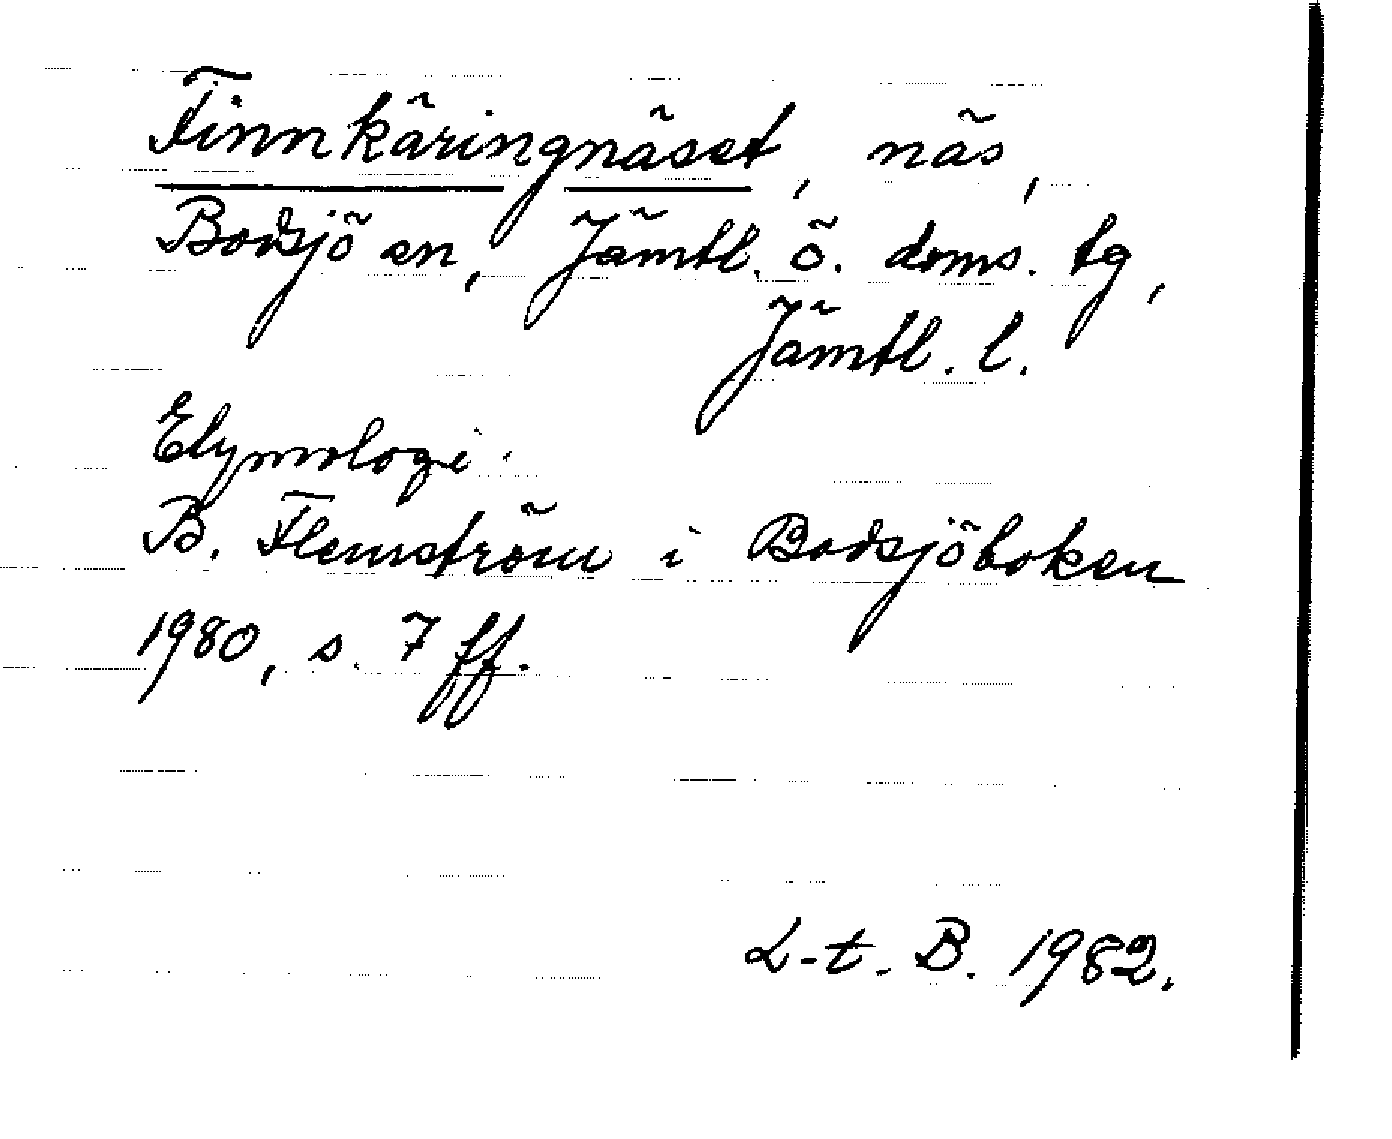 Finnkäringnäset, näs,
Bodsjö sn, Jämtl. ö. doms. tg,
Jämtl. l.
Etymologi.
B. Flemström i Bodsjöboken
1980, s. 7 ff.
L-t. B. 1982.